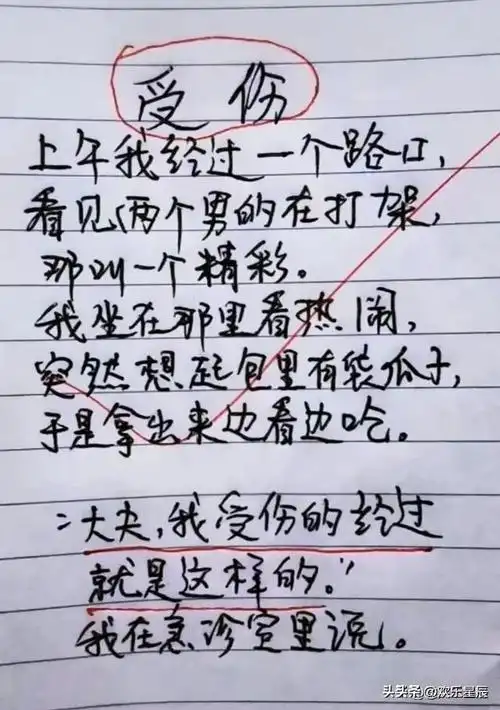 受伤
上午我经过一个路口,
看见两个男的在打架,
那叫一个精彩。
我坐在那里看热闹,
突然想起包里有袋瓜子,
于是拿出来边看边吃。
“大夫,我受伤的经过
就是这样的。”
我在急诊室里说。
头条@欢乐星辰